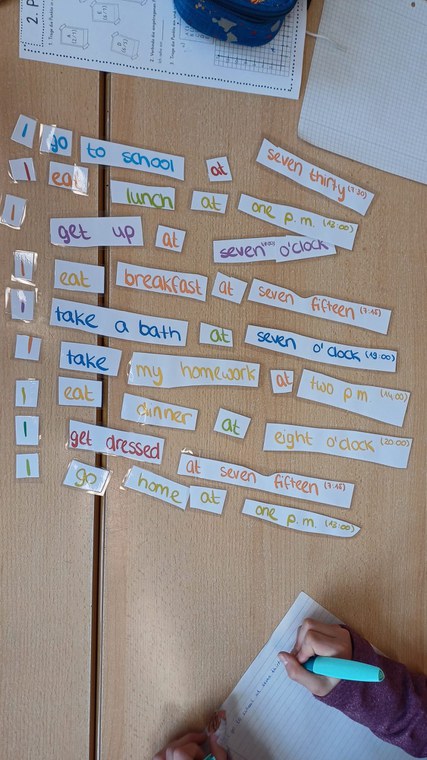 I go to school at seven thirty (7:30)
I eat lunch at one p.m. (13:00)
I get up at seven o'clock
I eat breakfast at seven fifteen (7:15)
I take a bath at seven o'clock (19:00)
I take my homework at two p.m (14:00)
I eat dinner at eight o'clock (20:00)
I get dressed at seven fifteen (7:15)
I go home at one p.m. (13:00)